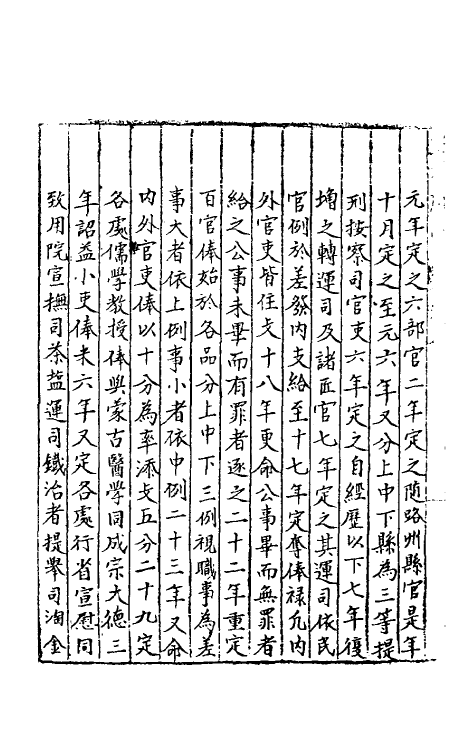 元年定之六部官二年定之随路州縣官是年
十月定之至元六年又分上中下縣為三等提
刑按察司官吏六年定之自經歷以下七年復
増之轉運司及諸匠官七年定之其運司依民
官例於差發内支給至十七年定奪俸禄凡内
外官吏皆住支十八年更命公事畢而無罪者
給之公事未畢而有罪者逐之二十二年重定
百官俸始於各品分上中下三例視職事為差
事大者依上例事小者依中例二十三年又命
内外官吏俸以十分為率添支五分二十九定
各處儒學教授俸與蒙古醫學同成宗大德三
年詔益小吏俸米六年又定各處行省宣慰同
致用院宣撫司茶鹽運司鐵冶者提舉司淘金